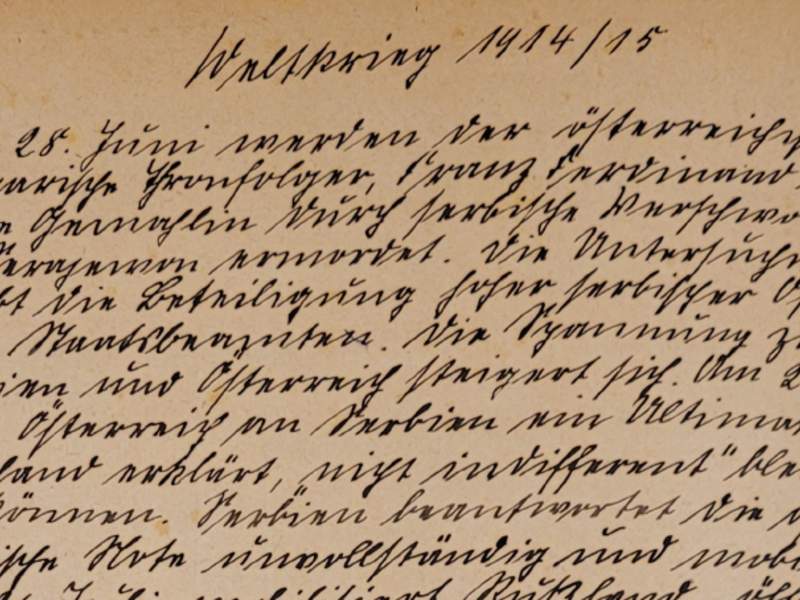 Weltkrieg 1914/15
28. Juni werden der österreichis
arische Thronfolger, Franz Ferdinand,
e Gemahlin durch serbische Verschwo
Serajewon ermordet. Die Untersuchu
bt die Beteiligung hoher serbischer O
Staatsbeamten. Die Spannung z
ien und Österreich steigert sich. Am 2
Österreich an Serbien ein Ultimat
land erklärt, nicht indifferent" ble
können. Serbien beantwortet die
ische Note unvollständig und mobi
Juli mobilisiert Rußland, öst